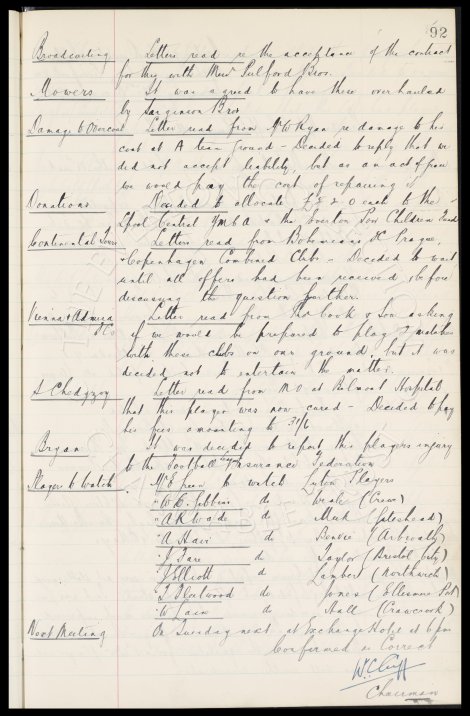 92
Broadcasting Letters read re the acceptance of the contract
for this with Messrs Pulford Bros.
Mowers It was agreed to have these overhauled
by Sargenson Bros
Damage to Overcoat Letter read from Mr W Ryan re damage to his
coat at A team ground - Decided to reply that we
did not accept liability, but as an act of grace
we would pay the cost of repairing it
Donations Decided to allocate £5 5 0 each to the
Lpool Central YMCA & the Everton Poor Children Fund
Continental Tours Letters read from Bohemians FC Prague,
& Copenhagen Combined Clubs - Decided to wait
until all offers had been received before
discussing the question further.
Vienna & Admira FCs Letter read from Thos Cook & Son asking
if we would be prepared to play 2 matches
with these clubs on our ground, but it was
decided not to entertain the matter.
S Chedgzoy Letter read from M O at Belmont Hospital
that this player was now cured - Decided to pay
his fees amounting to 30/6
Bryan It was decided to report this players injury
to the Football Insurance Federation
Player to Watch Mr Green to watch Luton Players
" W C Gibbins do Weale (Crewe)
" A R Wade do Meek (Gateshead)
" A Hair do (Arbroath)
" J Fare do Taylor (Bristol City)
" J Elliott do Lambert (Northwich)
" T Fleetwood do Jones (Ellesmere Port)
" W Lain do Hall (Crawcrook)
Next Meeting On Tuesday next at Exchange Hotel at 6 pm
Confirmed as Correct
W.C. Cuff
Chairman